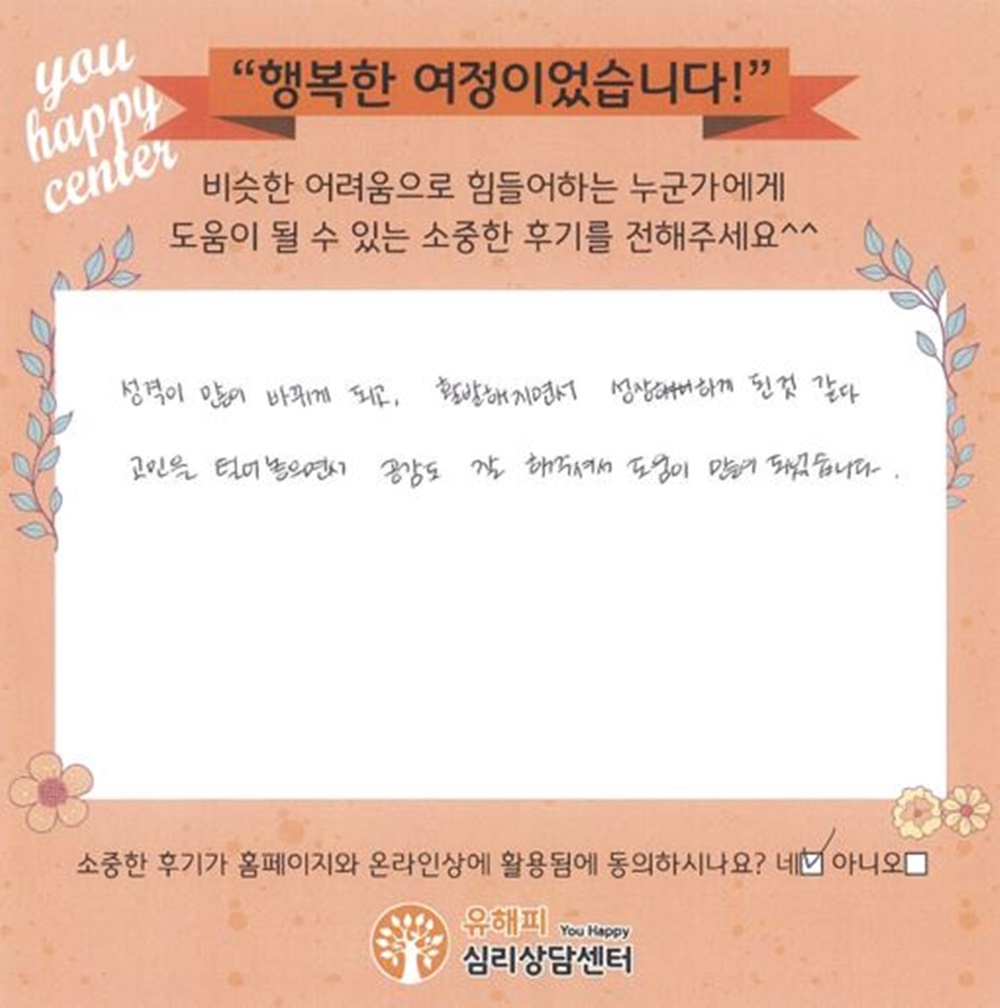 you
happy
center
“행복한 여정이었습니다!”
비슷한 어려움으로 힘들어하는 누군가에게
도움이 될 수 있는 소중한 후기를 전해주세요^^
성격이 많이 바뀌게 되고, 활발해지면서 성장하게 된것 같다
고민을 털어놓으면서 공감도 잘 해주셔서 도움이 많이 되었습니다.
소중한 후기가 홈페이지와 온라인상에 활용됨에 동의하시나요? 네☑ 아니오☐
유해피 You Happy
심리상담센터